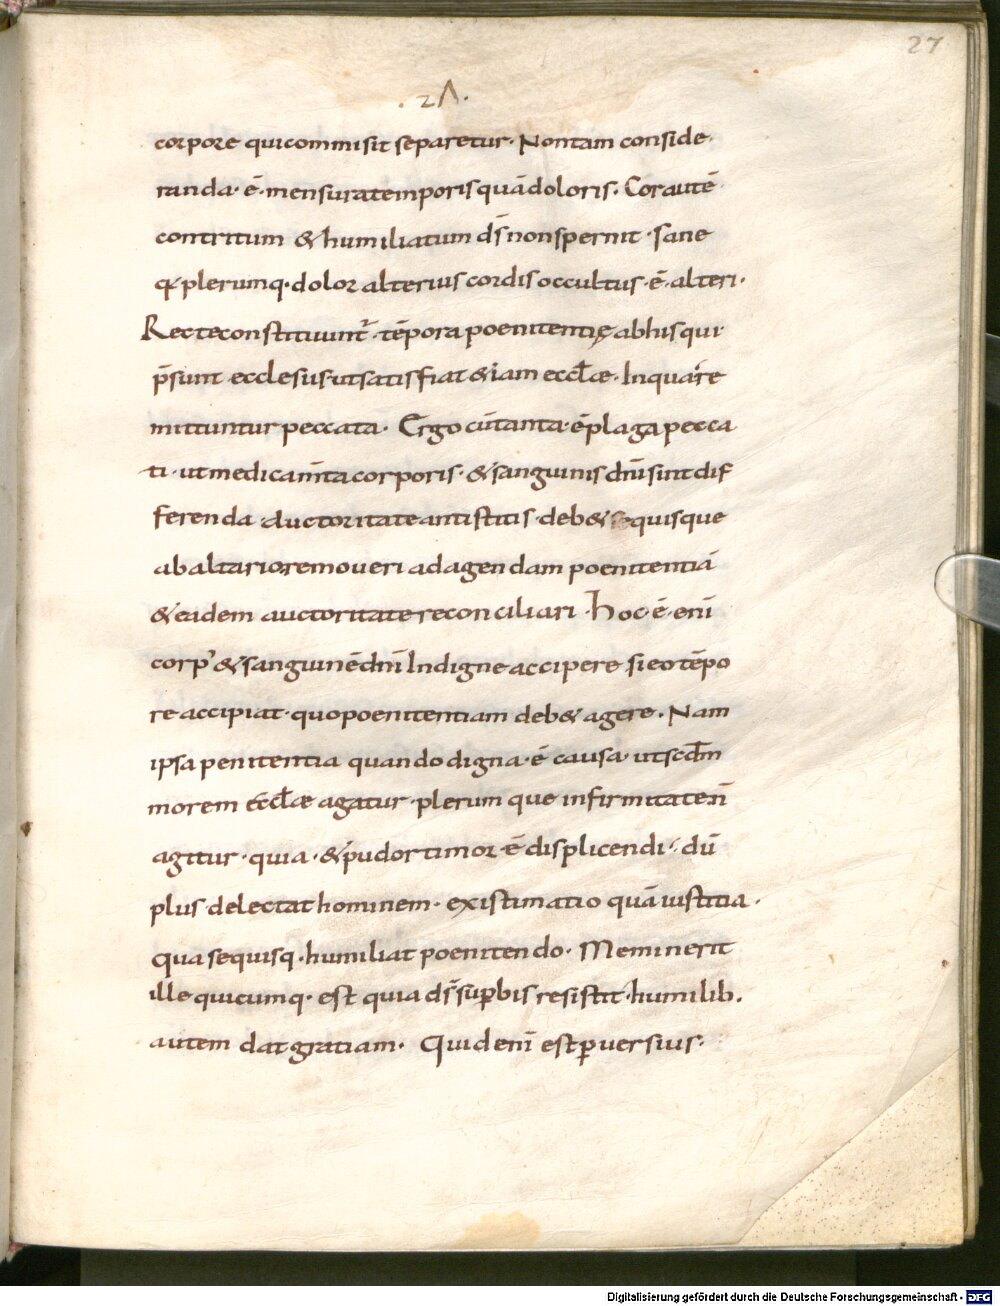 27
. 2Λ.
corpore quicommisit separetur· Nontam conside·
randa· ē· mensuratemporisquādoloris· Corautē
contritum &humiliatum dsn̄onspernit· sane
qꝛplerumq·dolor alterius cordisoccultus·ē·alteri·
Recteconstituunt᷑·tēpora poenitentię abhisqui·
p̄sunt ecclesiis·utsatisfiat &iam eccl̄ae· Inquare
mittuntur peccata· Ergo cūtanta·ēplaga pecca
ti·utmedicam̄ta corporis·&sanguinis dn̄isint dif
ferenda auctoritate antistitis·deb& quisque
abaltarioremoueri adagendam poenitentiā
&eadem auctoritate reconciliari· Hoc·ē·enī
corp'&sanguinēdn̄i Indigne accipere sieotēpo
re accipiat·quopoenitentiam deb&agere· Nam
ipsa penitentia quando digna·ē causa·utscd̄m
morem Eccl̄ae agatur·plerum que infirmitaten̄
agitur·quia·&pudortimor·ē displicendi·dū
plus·delectat hominem·existimatio quā iustitia·
qua sequisq·humiliat poenitendo· Meminerit
ille quicumq· est quia ds̄suꝑbis resistit·humilib·
autem dat gratiam· Quid enī est ꝑuersius·
Digitalisierung gefördert durch die Deutsche Forschungsgemeinschaft - DFG